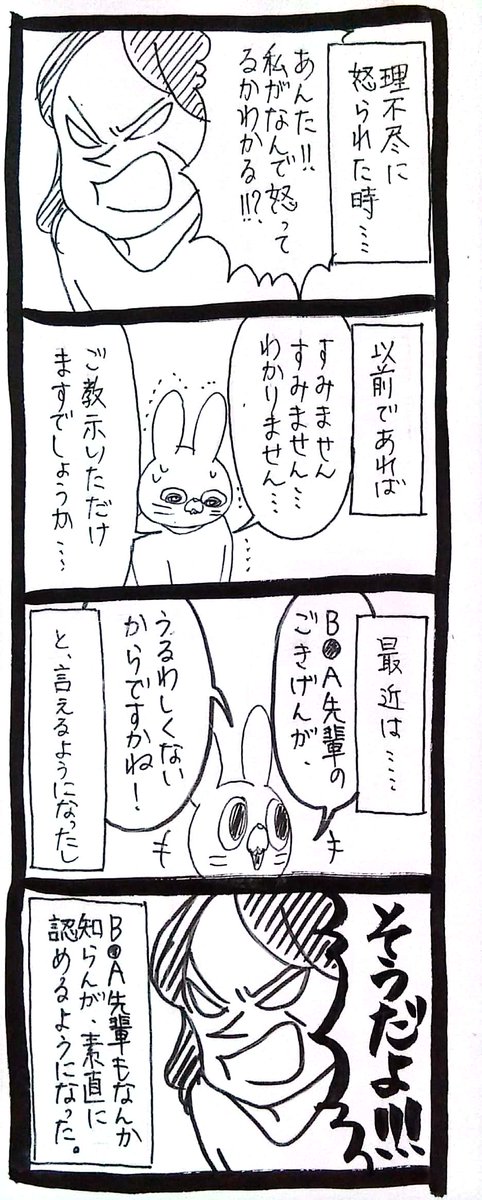 理不尽に
怒られた時…
あんた!!
私がなんで怒って
るかわかる!!!?
以前であれば
すみません
すみません…
わかりません…
ご教示いただけ
ますでしょうか…
最近は……
B●A先輩の
ごきげんが、
うるわしくない
からですかね!
と、言えるようになったし
そうだよ!!!
B●A先輩もなんか
知らんが、素直に
認めるようになった。